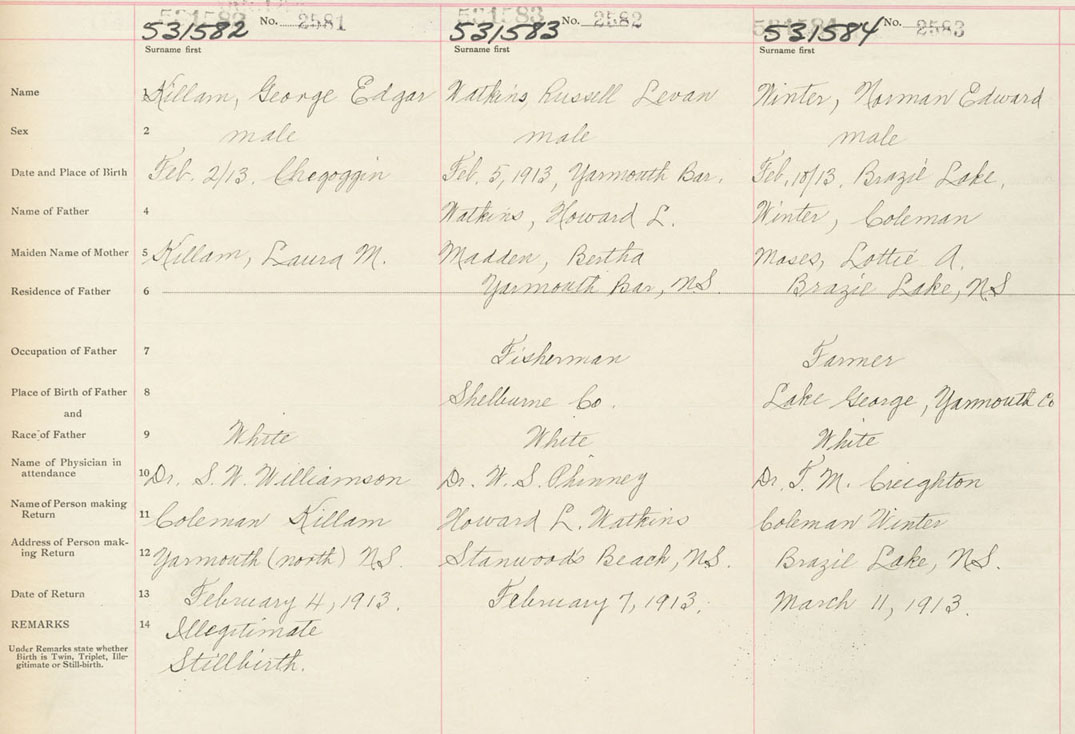 531582 No. 2581 531583 No. 2582 531584 No. 2583
Surname first Surname first Surname first
Name 1 Killam, George Edgar Watkins, Russell Levan Winter, Norman Edward
Sex 2 male male male
Date and Place of Birth 3 Feb. 2/13. Chegoggin Feb. 5, 1913, Yarmouth Bar. Feb, 10/13. Brazil Lake,
Name of Father 4 Watkins, Howard L. Winter, Coleman
Maiden Name of Mother 5 Killam, Laura M. Madden, Bertha Moses, Lottie A.
Residence of Father 6 Yarmouth Bar, NS. Brazil Lake, NS
Occupation of Father 7 Fisherman Farmer
Place of Birth of Father 8 Shelburne Co. Lake George, Yarmouth Co
and
Race of Father 9 White White White
Name of Physician in
attendance 10 Dr. S. W. Williamson Dr. W. S. Phinney Dr. T. M. Creighton
Name of Person making
Return 11 Coleman Killam Howard L. Watkins Coleman Winter
Address of Person mak-
ing Return 12 Yarmouth (north) NS. Stanwood's Beach, NS. Brazil Lake, NS.
Date of Return 13 February 4, 1913. February 7, 1913. March 11, 1913.
REMARKS 14 Illegitimate
Under Remarks state whether
Birth is Twin, Triplet, Ille-
gitimate or Still-birth.
Stillbirth.